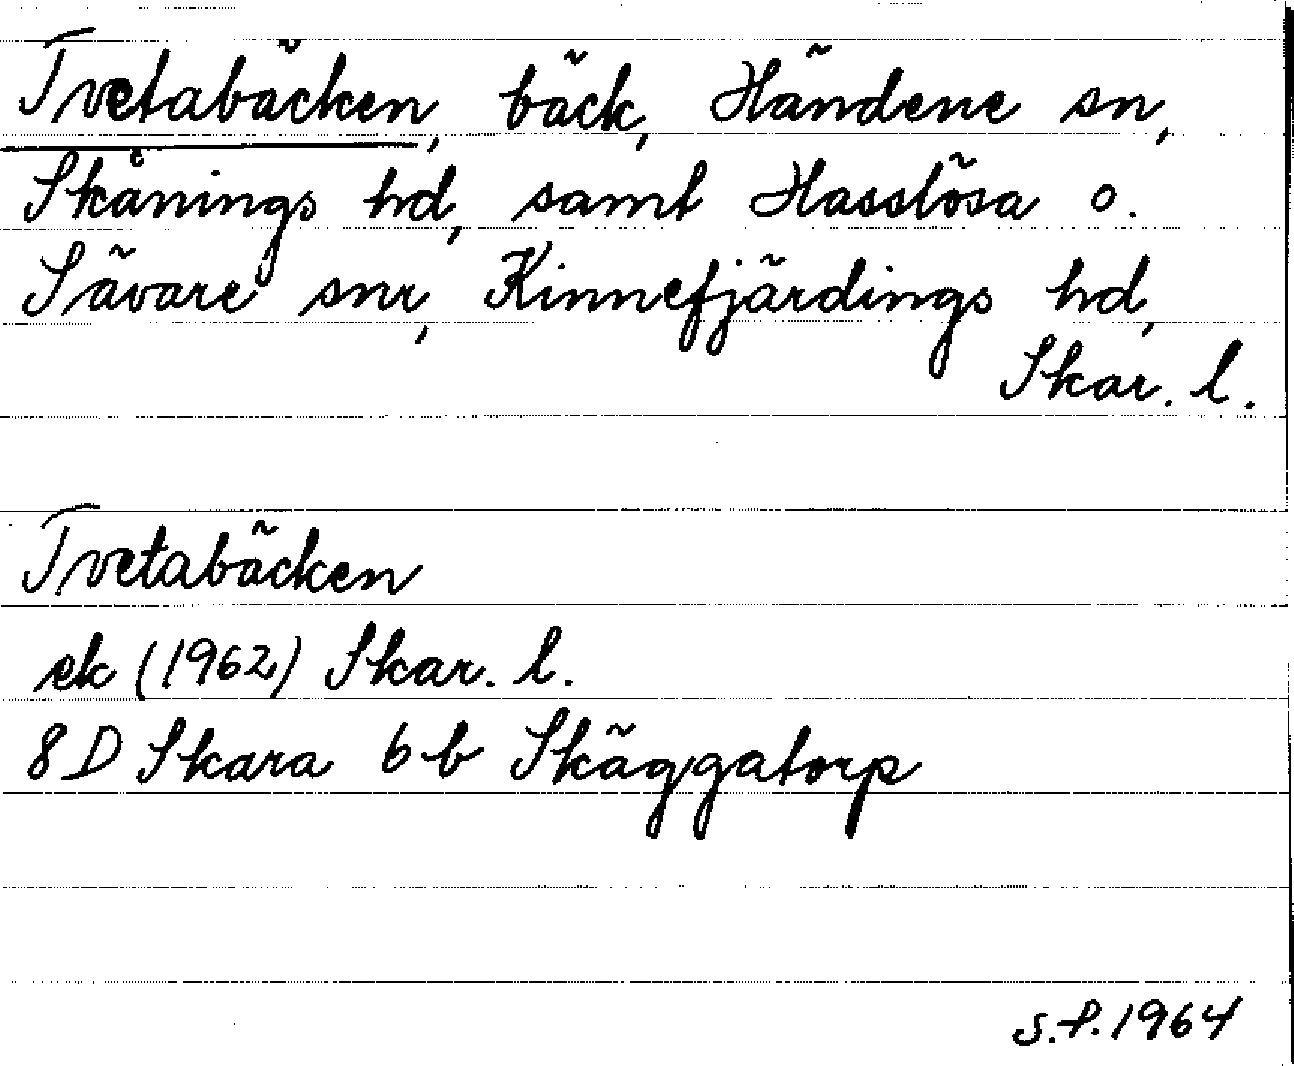 Tvetabäcken, bäck, Händene sn,
Skånings hd, samt Hasslösa o.
Sävare snr, Kinnefjärdings hd,
Skar. l.
Tvetabäcken
ek (1962) Skar. l.
8 D Skara 6 b Skäggatorp
S.P. 1964